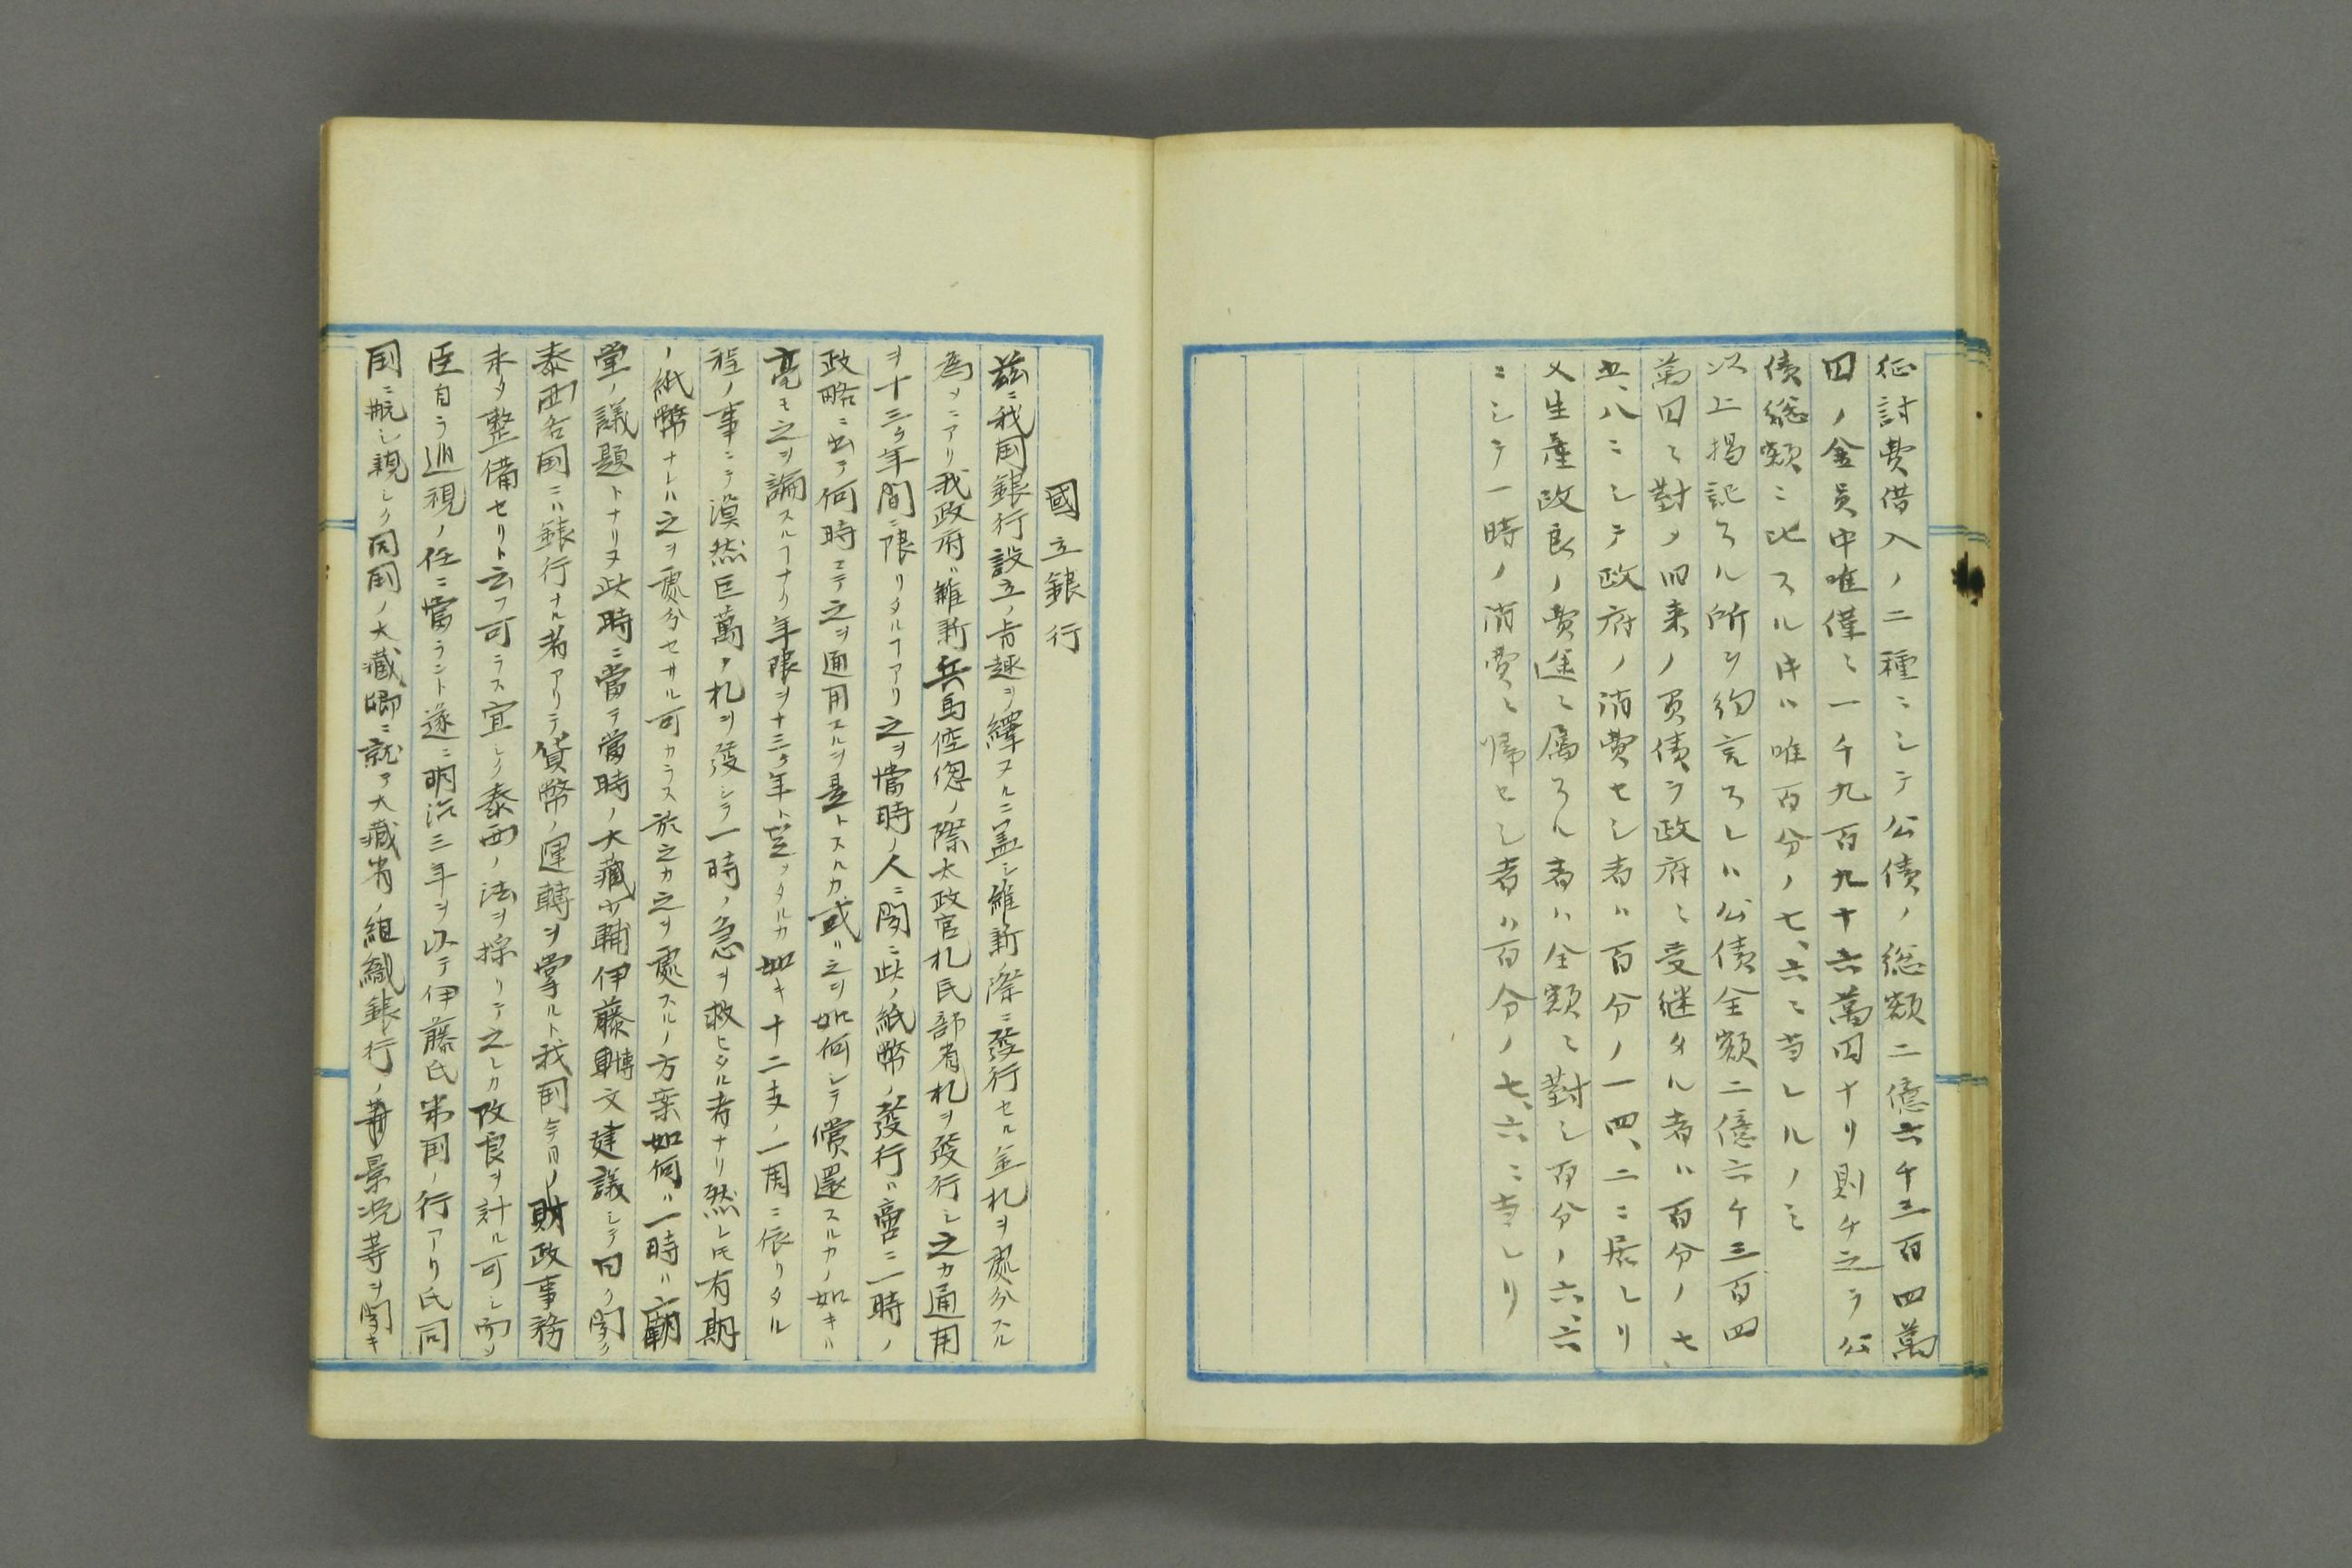 征討費借入ノ二種ニシテ公債ノ総額二億六千三百四萬
円ノ金員中唯僅ニ一千九百九十六萬円ナリ則チ之ヲ公
債総額ニ比スル片ハ唯百分ノ七、六ニ当レルノミ
以上掲記スル所ヲ約言スレハ公債全額二億六千三百四
萬円ニ對メ旧来ノ負債ヲ政府ニ受継タル者ハ百分ノ七
五、八ニシテ政府ノ消費セシ者ハ百分ノ一四、二ニ居レリ
又生産改良ノ費途ニ属スル者ハ全額ニ對シ百分ノ六、六
ニシテ一時ノ消費ニ帰セシ者ハ百分ノ七、六ニ当レリ
國立銀行
茲ニ我国銀行設立ノ旨趣ヲ繹ヌルニ蓋シ維新ノ際ニ發行セル金札ヲ處分スル
為メニアリ我政府ハ維新兵馬倥偬ノ際太政官札民部省札ヲ發行シ之カ通用
ヲ十三ケ年間ニ限リタルヿアリ之ヲ當時ノ人ニ聞ニ此ノ紙幣ノ發行ハ啻ニ一時ノ
政略ニ出テ何時マテ之ヲ通用スルヲ是トスルカ或ハ之ヲ如何シテ償還スルカノ如キハ
毫モ之ヲ論スルヿナク年限ヲ十三ケ年ト定メタルカ如キ十二支ノ一周ニ依リタル
程ノ事ニテ漠然巨萬ノ札ヲ發シテ一時ノ急ヲ救ヒタル者ナリ然レ𪜈有期
ノ紙幣ナレハ之ヲ處分セサル可カラス於之カ之ヲ處スルノ方案如何ハ一時ハ廟
堂ノ議題トナリヌ此時ニ當テ當時ノ大藏少輔伊藤博文建議シテ曰ク聞ク
泰西各国ニハ銀行ナル者アリテ貨幣ノ運轉ヲ掌ルト我国今日ノ財政事務
未タ整備セリト云フ可ラス宜シク泰西ノ法ヲ採リテ之レカ改良ヲ計ル可シ而メ
臣自ラ巡視ノ任ニ當ラント遂ニ明治三年ヲ以テ伊藤氏米国ノ行アリ氏同
国ニ航シ親シク同国ノ大藏卿ニ就テ大藏省ノ組織銀行ノ景況等ヲ聞キ